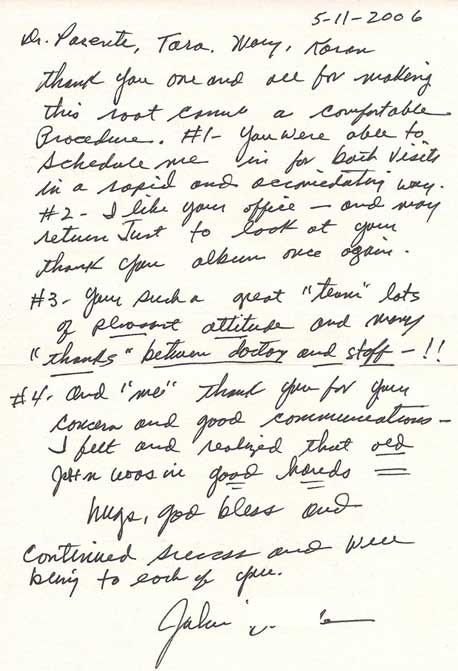 5-11-2006
Dr. Parente, Tara, Mary, Karan
thank you one and all for making
this root canal a comfortable
Procedure. #1- You were able to
schedule me in for both visits
in a rapid and accomidating way.
#2- I like your office - and may
return Just to look at your
thank you album once again.
#3- Your such a great "team" lots
of pleasant attitude and many
"thanks" between doctor and staff - !!
#4- And "me" thank you for your
concern and good communications -
I felt and realized that old
John was in good hands
hugs, god bless and
Continued success and well
being to each of you.
John